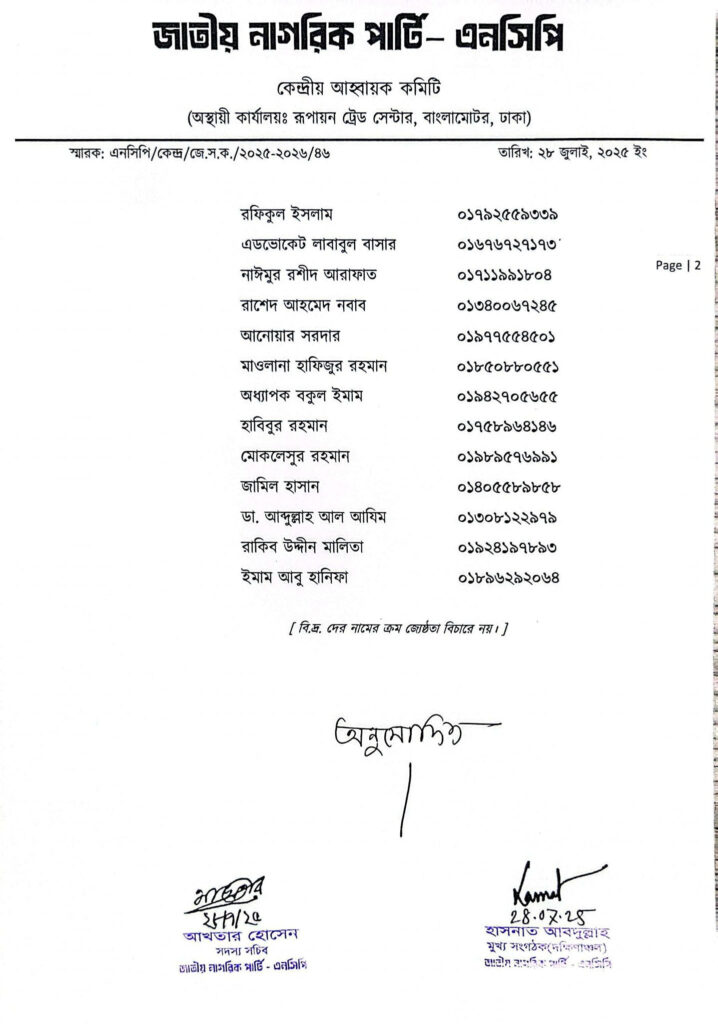 জাতীয় নাগরিক পার্টি– এনসিপি
কেন্দ্রীয় আহ্বায়ক কমিটি
(অস্থায়ী কার্যালয়ঃ রূপায়ন ট্রেড সেন্টার, বাংলামোটর, ঢাকা)
স্মারক: এনসিপি/কেন্দ্র/জে.স.ক./২০২৫-২০২৬/৪৬ তারিখ: ২৮ জুলাই, ২০২৫ ইং
রফিকুল ইসলাম ০১৭৯২৫৫৯৩৩৯
এডভোকেট লাবাবুল বাসার ০১৬৭৬৭২৭১৭৩
নাঈমুর রশীদ আরাফাত ০১৭১১৯৯১৮০৪
Page | 2
রাশেদ আহমেদ নবাব ০১৩৪০০৬৭২৪৫
আনোয়ার সরদার ০১৯৭৭৫৫৪৫০১
মাওলানা হাফিজুর রহমান ০১৮৫০৮৮০৫৫১
অধ্যাপক বকুল ইমাম ০১৯৪২৭০৫৬৫৫
হাবিবুর রহমান ০১৭৫৮৯৬৪১৪৬
মোকলেসুর রহমান ০১৯৮৯৫৭৬৯৯১
জামিল হাসান ০১৪০৫৫৮৯৮৫৮
ডা. আব্দুল্লাহ আল আযিম ০১৩০৮১২২৯৭৯
রাকিব উদ্দীন মালিতা ০১৯২৪১৯৭৮৯৩
ইমাম আবু হানিফা ০১৮৯৬২৯২০৬৪
[ বি.দ্র. দের নামের ক্রম জ্যেষ্ঠতা বিচারে নয়। ]
অনুমোদিত
২৮/৭/২৫
28.07.25
আখতার হোসেন
সদস্য সচিব
জাতীয় নাগরিক পার্টি - এনসিপি
হাসনাত আবদুল্লাহ
মুখ্য সংগঠক(দক্ষিণাঞ্চল)
জাতীয় নাগরিক পার্টি - এনসিপি